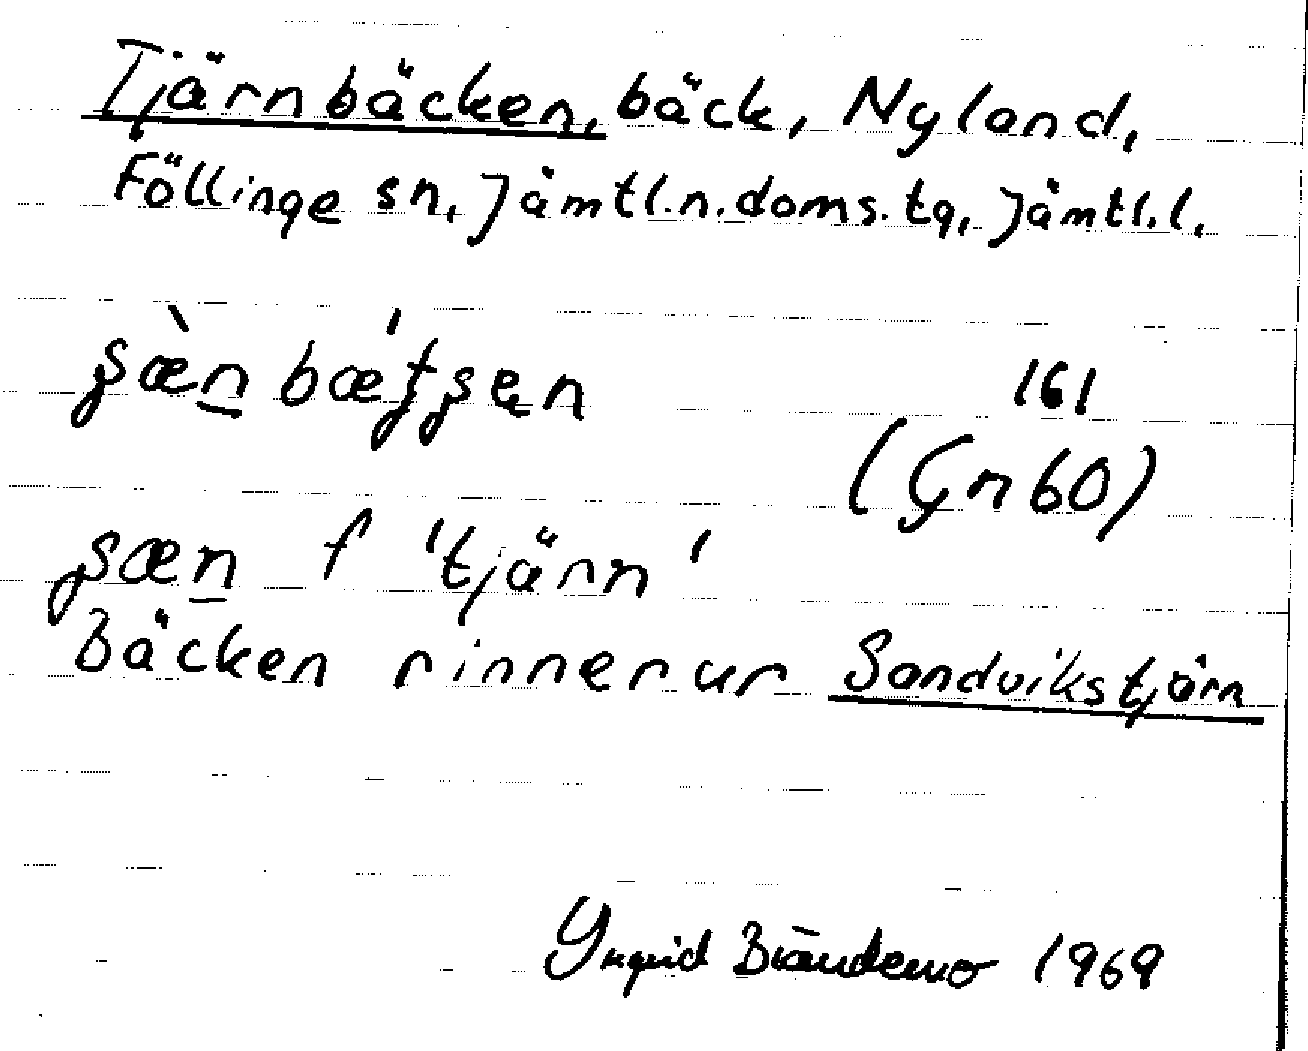 Tjärnbäcken, bäck, Nyland,
Föllinge sn, Jämtl.n.doms.tg, Jämtl.l.
161
(Gn60)
f 'tjärn'
Bäcken rinner ur Sandvikstjärn
Yngvid Brändemo 1969